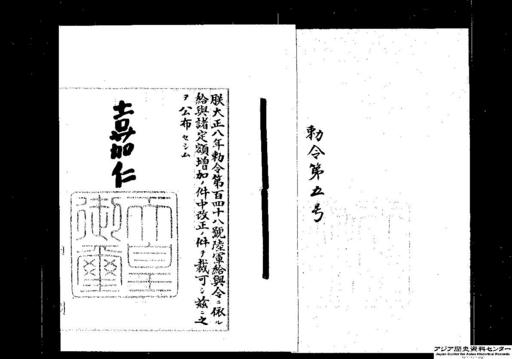 勅令第五号
朕大正八年勅令第百四十八號陸軍給與令ニ依ル
給與諸定額増加ノ件中改正ノ件ヲ裁可シ茲ニ之
ヲ公布セシム
嘉仁
天皇
御璽
アジア歴史資料センター
Japan Center for Asian Historical Records